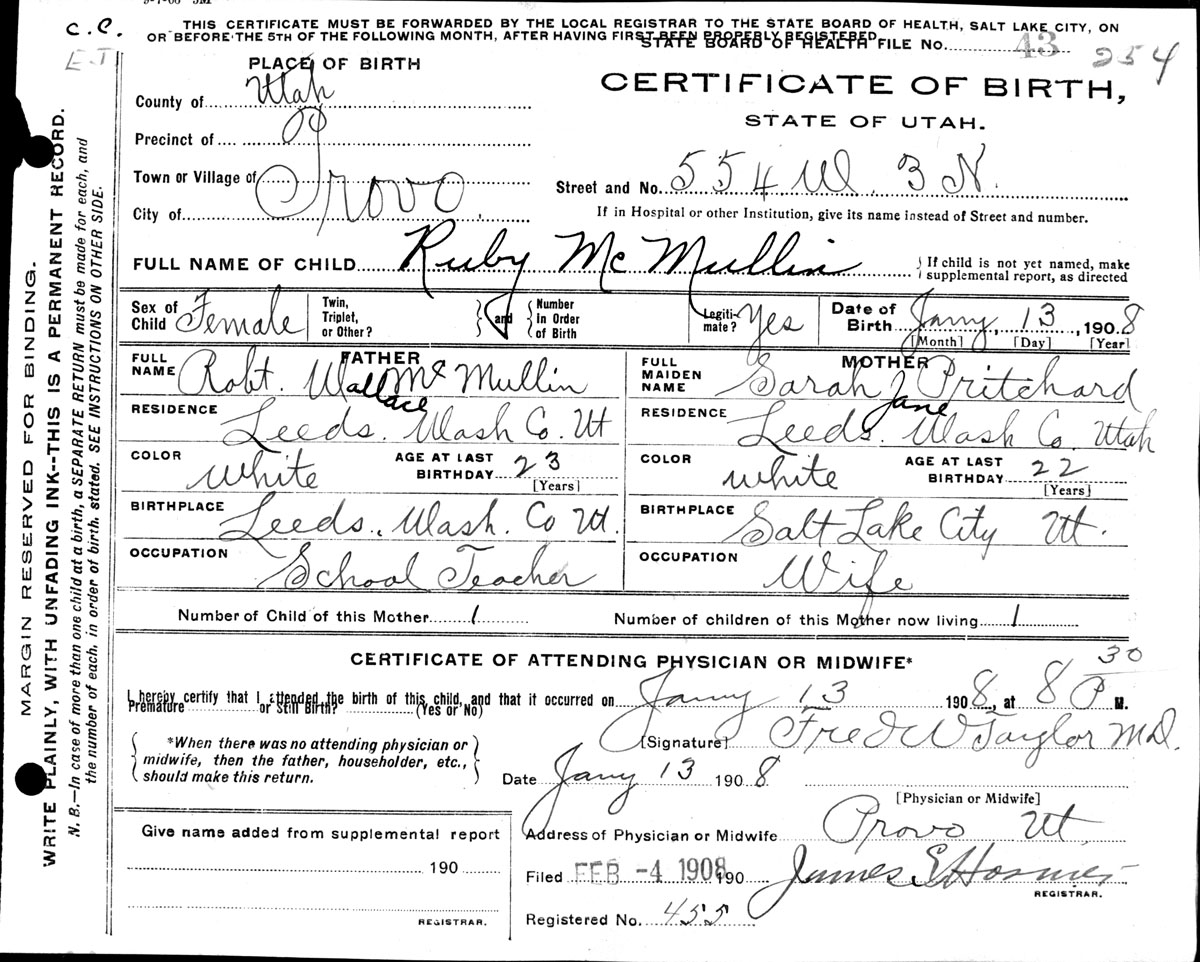 C.C.
E.J
THIS CERTIFICATE MUST BE FORWARDED BY THE LOCAL REGISTRAR TO THE STATE BOARD OF HEALTH, SALT LAKE CITY, ON
OR BEFORE THE 5TH OF THE FOLLOWING MONTH, AFTER HAVING FIRST BEEN PROPERLY REGISTERED
STATE BOARD OF HEALTH FILE NO. 43 254
PLACE OF BIRTH
County of Utah
Precinct of
Town or Village of
City of Provo.
CERTIFICATE OF BIRTH,
STATE OF UTAH.
Street and No. 554 W. 3 N.
If in Hospital or other Institution, give its name instead of Street and number.
FULL NAME OF CHILD Ruby McMullin
If child is not yet named, make
supplemental report, as directed
Sex of Child Female
Twin, Triplet, or Other?
and
Number in Order of Birth
Legiti-mate? Yes
Date of Birth Jany, 13, 1908
[Month] [Day] [Year]
FATHER
FULL NAME Robt. Wallace McMullin
RESIDENCE Leeds. Wash Co. Ut
COLOR White AGE AT LAST BIRTHDAY 23
[Years]
BIRTHPLACE Leeds. Wash. Co Ut.
OCCUPATION School Teacher
MOTHER
FULL MAIDEN NAME Sarah Jane Pritchard
RESIDENCE Leeds. Wash Co. Utah
COLOR white AGE AT LAST BIRTHDAY 22
[Years]
BIRTHPLACE Salt Lake City Ut.
OCCUPATION Wife
Number of Child of this Mother 1 Number of children of this Mother now living 1
CERTIFICATE OF ATTENDING PHYSICIAN OR MIDWIFE*
I hereby certify that I attended the birth of this child, and that it occurred on Jany 13 1908, at 8 30 P M.
Premature or Still Birth? (Yes or No)
*When there was no attending physician or
midwife, then the father, householder, etc.,
should make this return.
[Signature] Fred W Taylor M.D.
Date Jany 13 1908
[Physician or Midwife]
Give name added from supplemental report
190
REGISTRAR.
Address of Physician or Midwife Provo Ut
Filed FEB -4 1908 190 James E Hosmer
REGISTRAR.
Registered No. 455
MARGIN RESERVED FOR BINDING.
WRITE PLAINLY, WITH UNFADING INK--THIS IS A PERMANENT RECORD.
N. B.—In case of more than one child at a birth, a SEPARATE RETURN must be made for each, and
the number of each, in order of birth, stated. SEE INSTRUCTIONS ON OTHER SIDE.